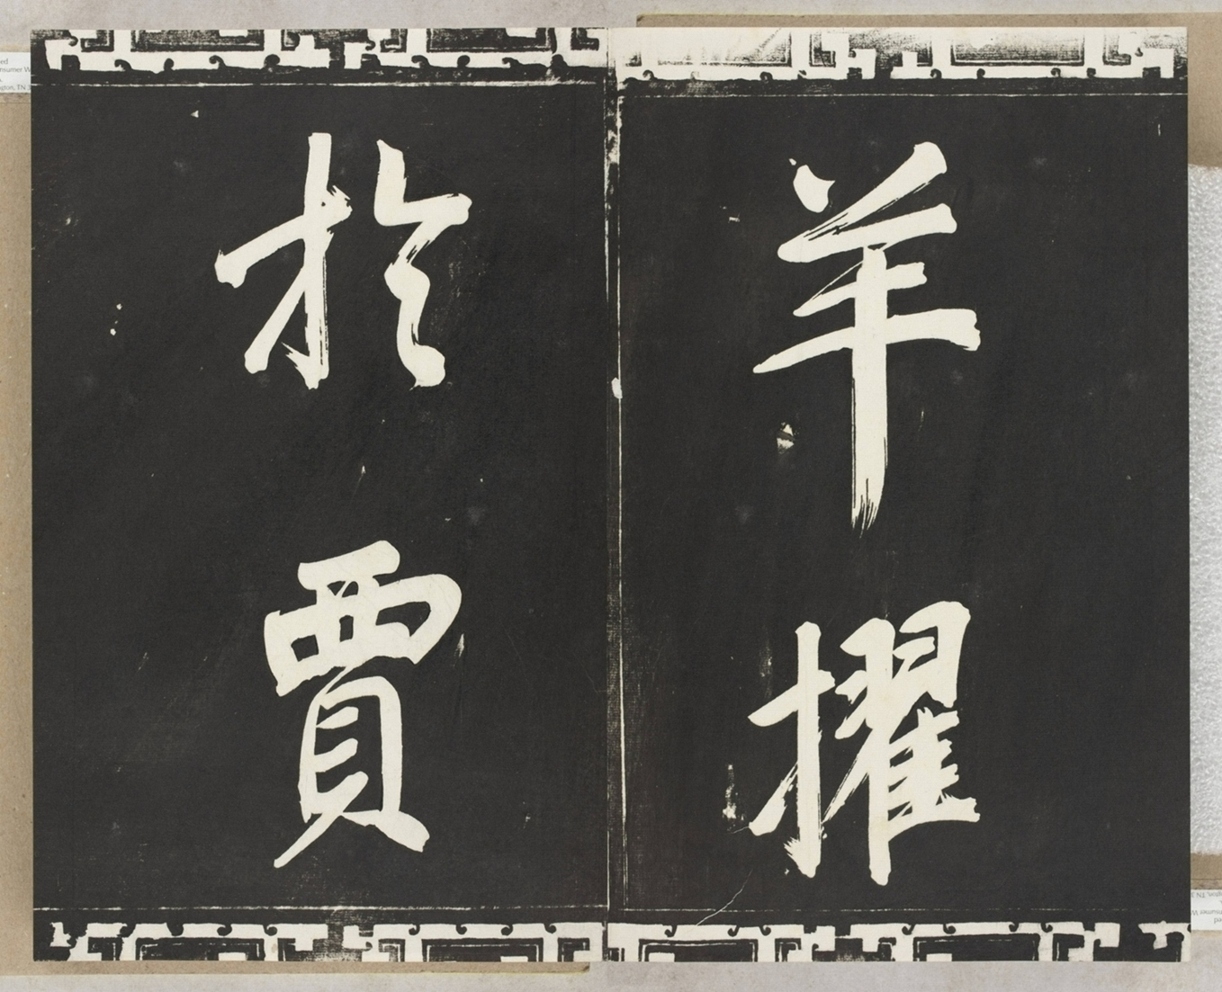 羊擢
於賈